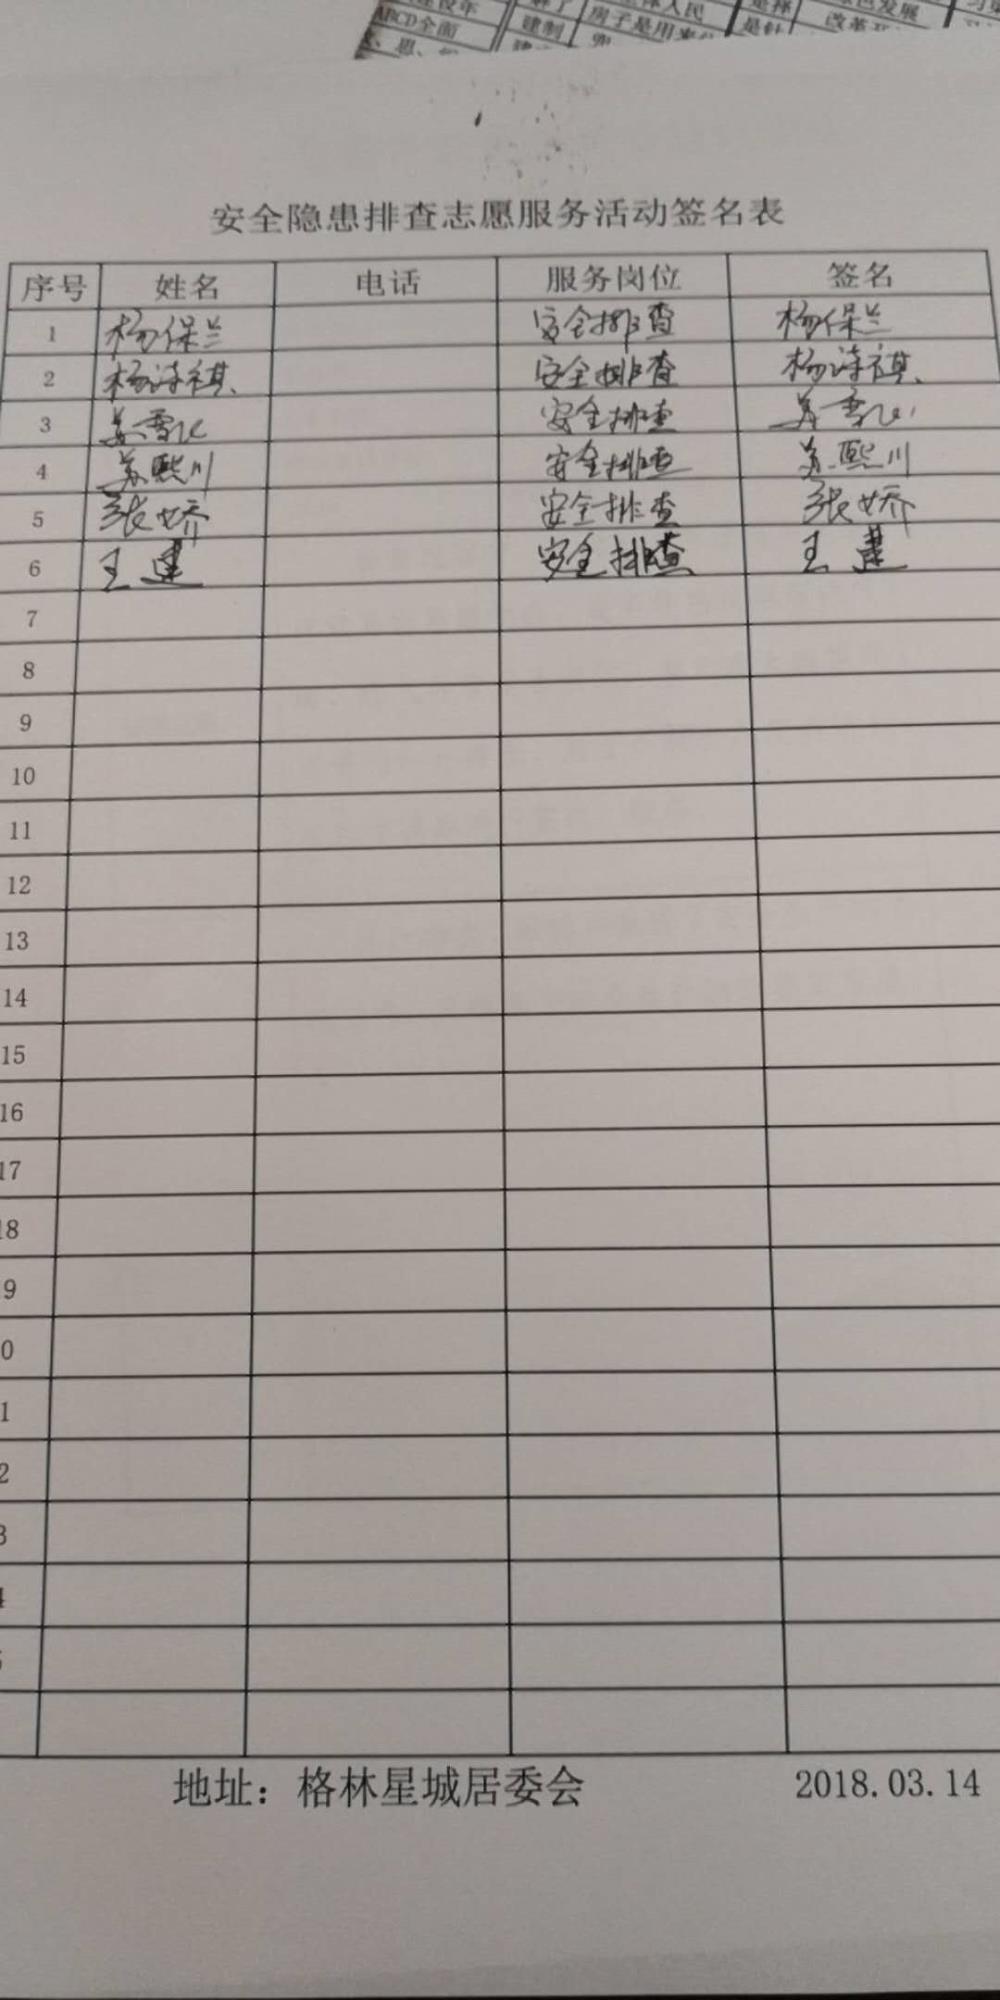 ABCD全面
建制
房子是用来
安全隐患排查志愿服务活动签名表
序号 姓名 电话 服务岗位 签名
1 杨保兰 安全排查 杨保兰
2 杨诗祺 安全排查 杨诗祺
3 安全排查
4 苏熙川 安全排查 苏熙川
5 张娇 安全排查 张娇
6 王建 安全排查 王建
7
8
9
10
11
12
13
14
15
16
17
18
9
0
1
2
3
4
地址：格林星城居委会 2018.03.14